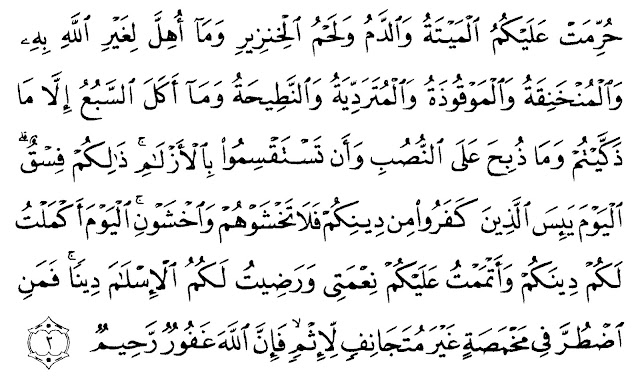 حُرِّمَتۡ عَلَيۡكُمُ ٱلۡمَيۡتَةُ وَٱلدَّمُ وَلَحۡمُ ٱلۡخِنزِيرِ وَمَآ أُهِلَّ لِغَيۡرِ ٱللَّهِ بِهِۦ
وَٱلۡمُنۡخَنِقَةُ وَٱلۡمَوۡقُوذَةُ وَٱلۡمُتَرَدِّيَةُ وَٱلنَّطِيحَةُ وَمَآ أَكَلَ ٱلسَّبُعُ إِلَّا مَا
ذَكَّيۡتُمۡ وَمَا ذُبِحَ عَلَى ٱلنُّصُبِ وَأَن تَسۡتَقۡسِمُواْ بِٱلۡأَزۡلَٰمِۚ ذَٰلِكُمۡ فِسۡقٌۗ
ٱلۡيَوۡمَ يَئِسَ ٱلَّذِينَ كَفَرُواْ مِن دِينِكُمۡ فَلَا تَخۡشَوۡهُمۡ وَٱخۡشَوۡنِۚ ٱلۡيَوۡمَ أَكۡمَلۡتُ
لَكُمۡ دِينَكُمۡ وَأَتۡمَمۡتُ عَلَيۡكُمۡ نِعۡمَتِي وَرَضِيتُ لَكُمُ ٱلۡإِسۡلَٰمَ دِينٗاۚ فَمَنِ
ٱضۡطُرَّ فِي مَخۡمَصَةٍ غَيۡرَ مُتَجَانِفٖ لِّإِثۡمٖۙ فَإِنَّ ٱللَّهَ غَفُورٞ رَّحِيمٞ ٣